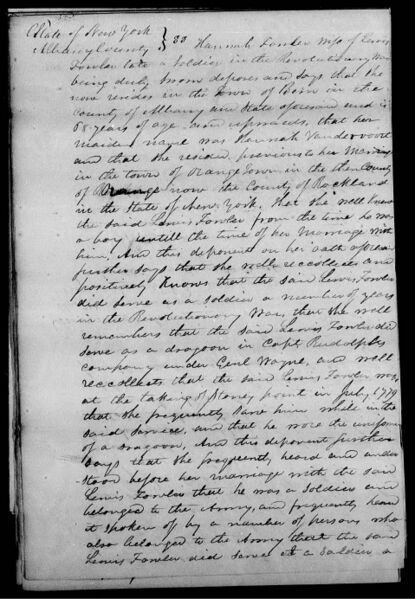 State of New York
Albany County } SS Hannah Fowler wife of Lewis
Fowler late a Soldier in the Revolutionary War
being duly sworn deposes and says that she
now resides in the Town of Bern in the
County of Albany and State aforesaid and is
68 years of age and upwards, that her
maiden name was Hannah Vandervoort
and that she resided previous to her Marriage
in the town of Orange Town in the then County
of Orange now the County of Rockland
in the State of New York, that she well knew
the said Lewis Fowler from the time he was
a boy untill the time of her Marriage with
him, And this deponent on her oath aforesaid
further says that she well recollects and
positively knows that the said Lewis Fowler
did serve as a soldier a number of years
in the Revolutionary War, that she well
remembers that the said Lewis Fowler did
serve as a dragoon in Capt Rudolphs
company under Genl Wayne, and well
reccollects that the said Lewis Fowler was
at the taking of Stoney point in July 1779
that she frequently saw him while in the
said service, and that he wore the uniform
of a dragoon, And this deponent further
says that she frequently heard and under
stood before her marriage with the said
Lewis Fowler that he was a soldier and
belonged to the Army, and frequently heard
it spoken of by a number of persons who
also belonged to the Army that the said
Lewis Fowler did serve as a Soldier a